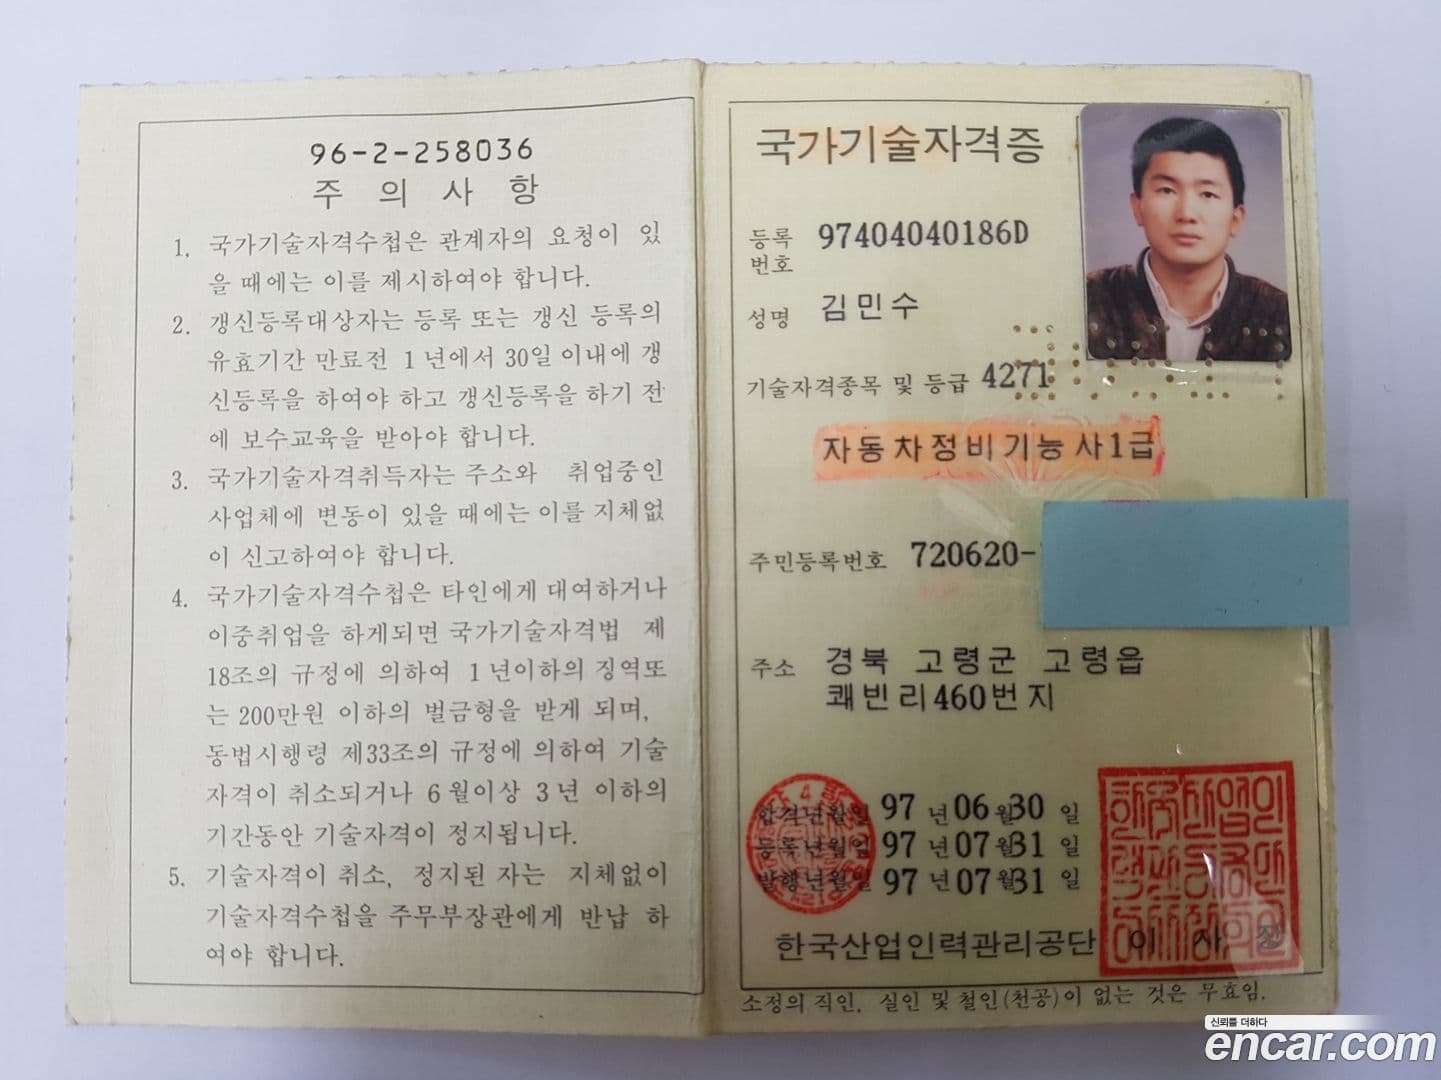 96-2-258036
주 의 사 항
1. 국가기술자격수첩은 관계자의 요청이 있
을 때에는 이를 제시하여야 합니다.
2. 갱신등록대상자는 등록 또는 갱신 등록의
유효기간 만료전 1년에서 30일 이내에 갱
신등록을 하여야 하고 갱신등록을 하기 전
에 보수교육을 받아야 합니다.
3. 국가기술자격취득자는 주소와 취업중인
사업체에 변동이 있을 때에는 이를 지체없
이 신고하여야 합니다.
4. 국가기술자격수첩은 타인에게 대여하거나
이중취업을 하게되면 국가기술자격법 제
18조의 규정에 의하여 1년이하의 징역또
는 200만원 이하의 벌금형을 받게 되며,
동법시행령 제33조의 규정에 의하여 기술
자격이 취소되거나 6월이상 3년 이하의
기간동안 기술자격이 정지됩니다.
5. 기술자격이 취소, 정지된 자는 지체없이
기술자격수첩을 주무부장관에게 반납 하
여야 합니다.
국가기술자격증
등록번호 97404040186D
성명 김민수
기술자격종목 및 등급 4271
자동차정비기능사1급
주민등록번호 720620-
주소 경북 고령군 고령읍
쾌빈리460번지
합격년월일 97 년 06 월 30 일
등록년월일 97 년 07 월 31 일
발행년월일 97 년 07 월 31 일
한국산업인력관리공단 이 사 장
소정의 직인, 실인 및 철인(천공)이 없는 것은 무효임.
신뢰를 더하다
encar.com